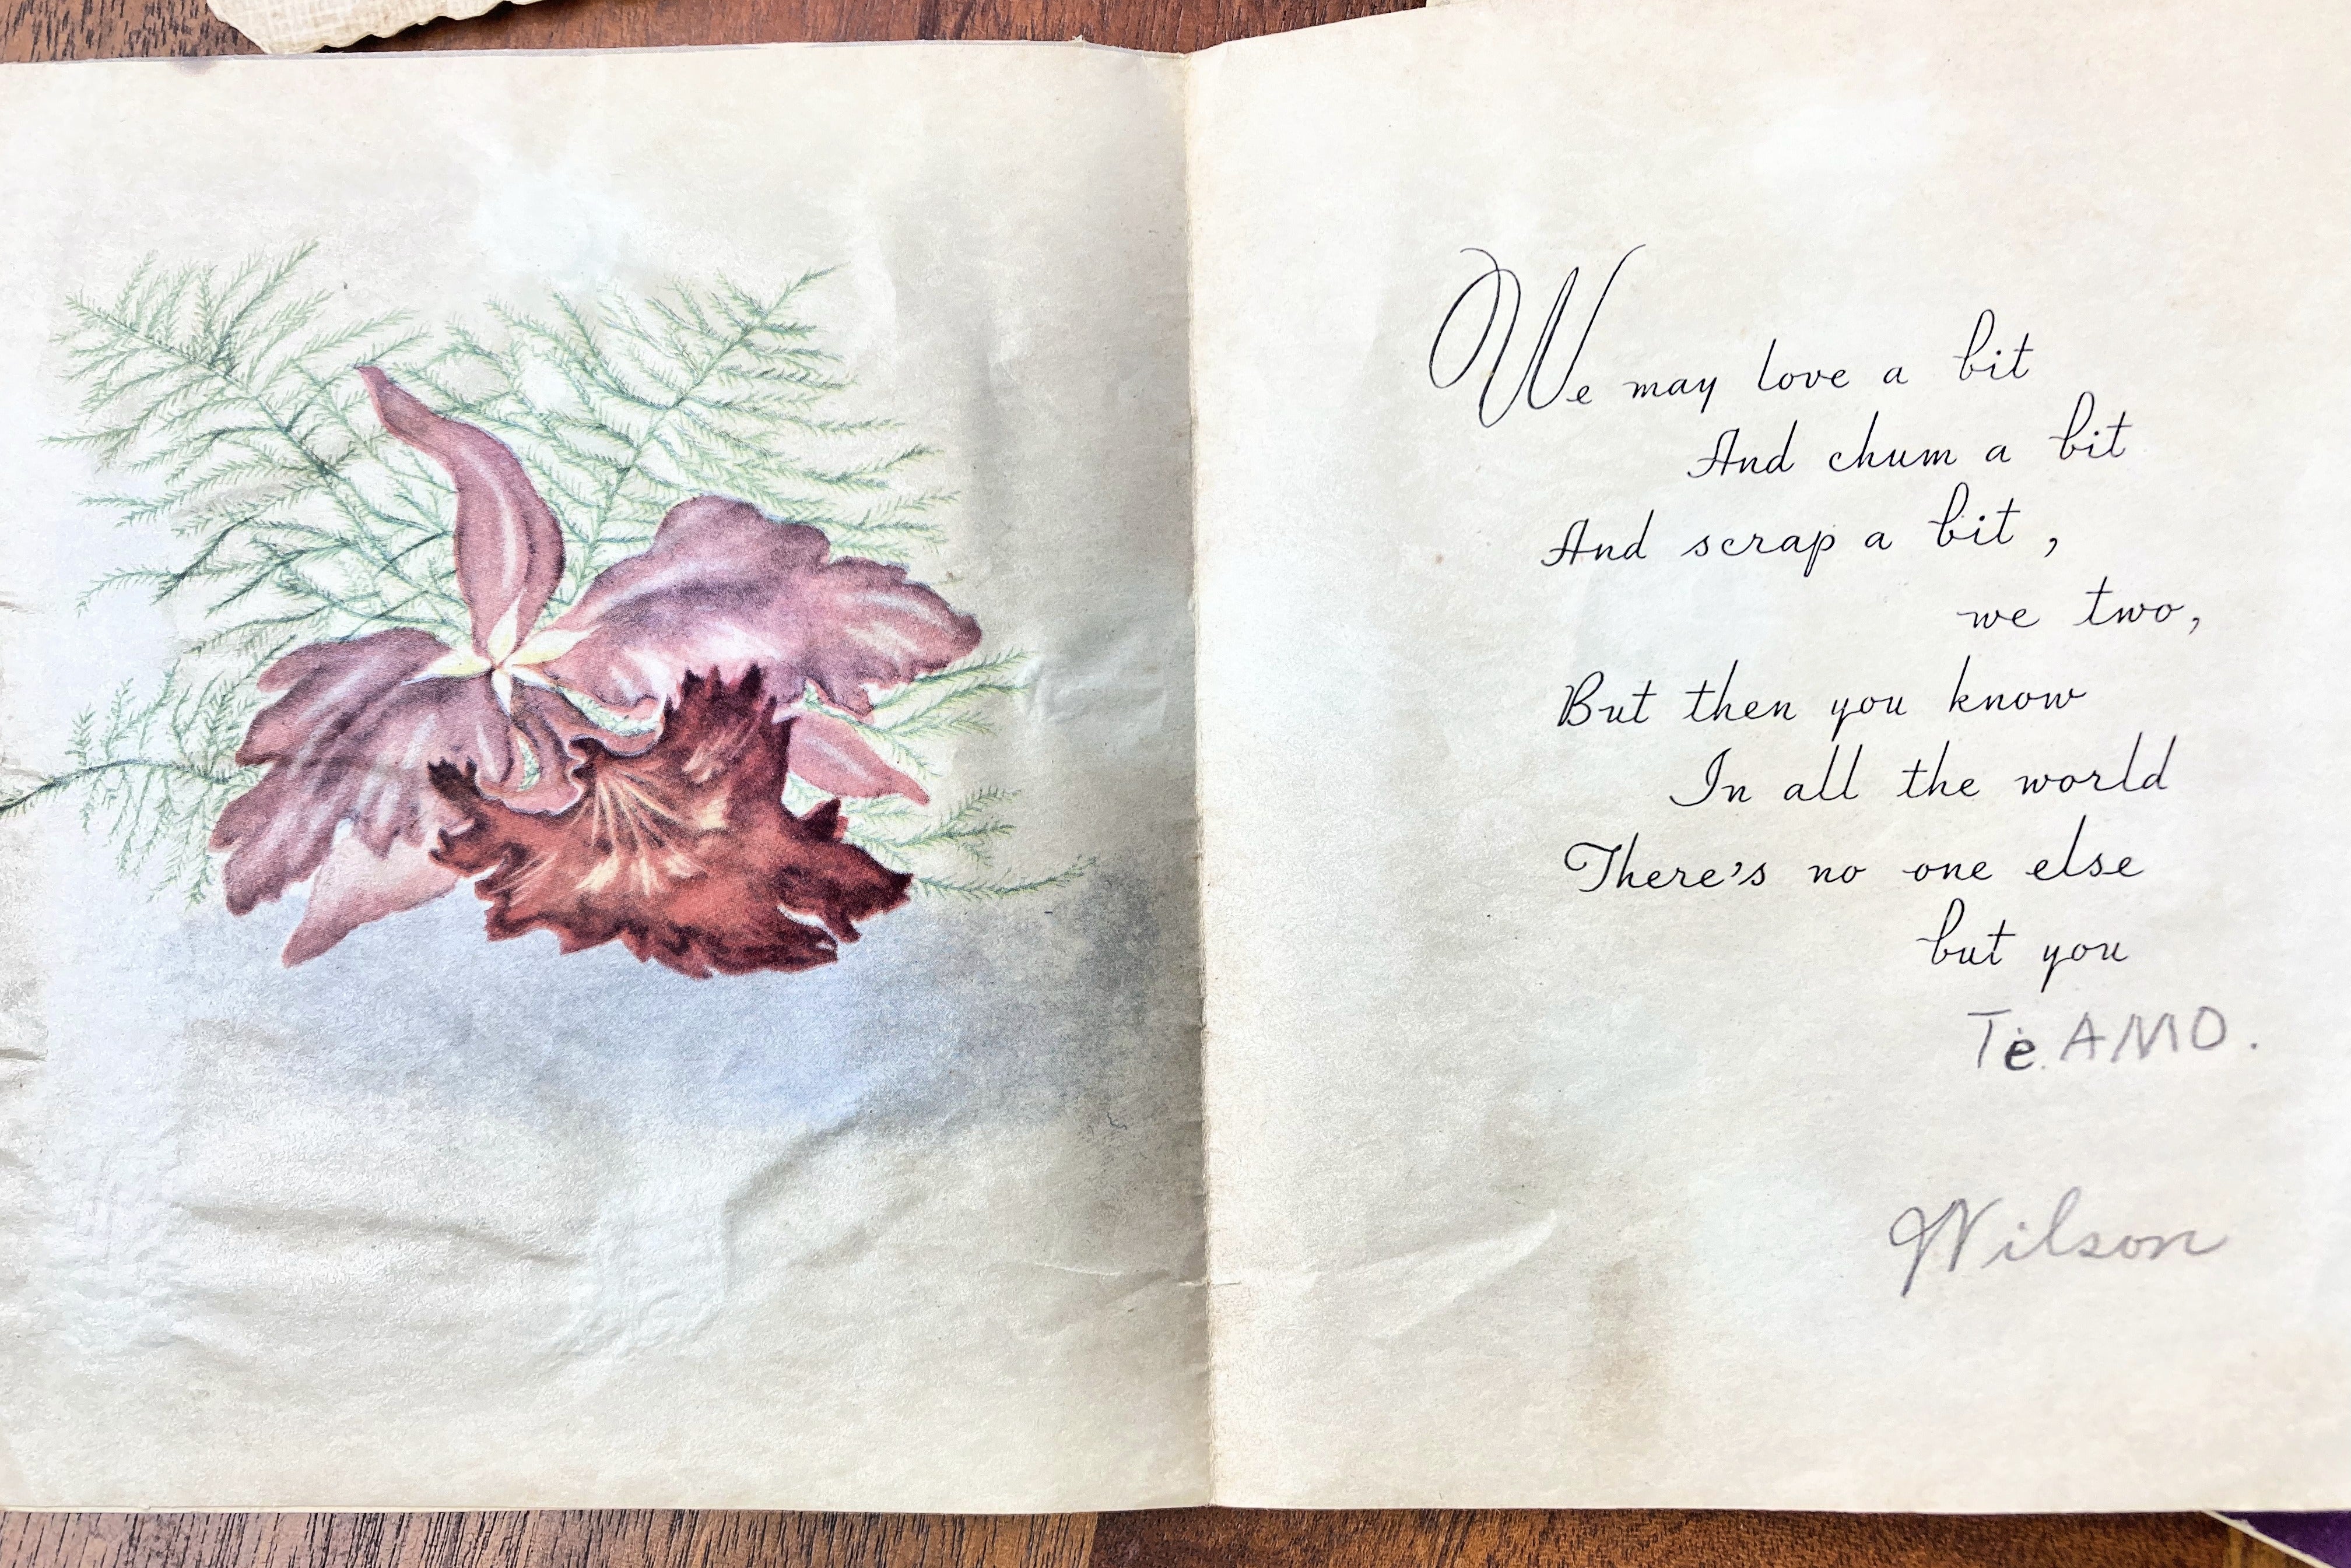 We may love a bit
And chum a bit
And scrap a bit,
we two,
But then you know
In all the world
There's no one else
but you
Te AMO.
Wilson